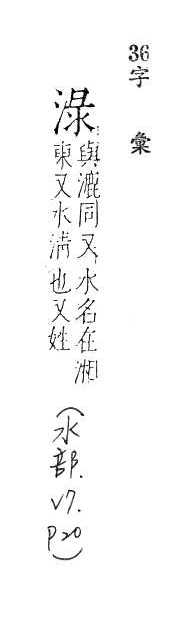 36
字彙
淥
與漉同又水名在湘
東又水清也又姓
(水部.
V7.
P20)